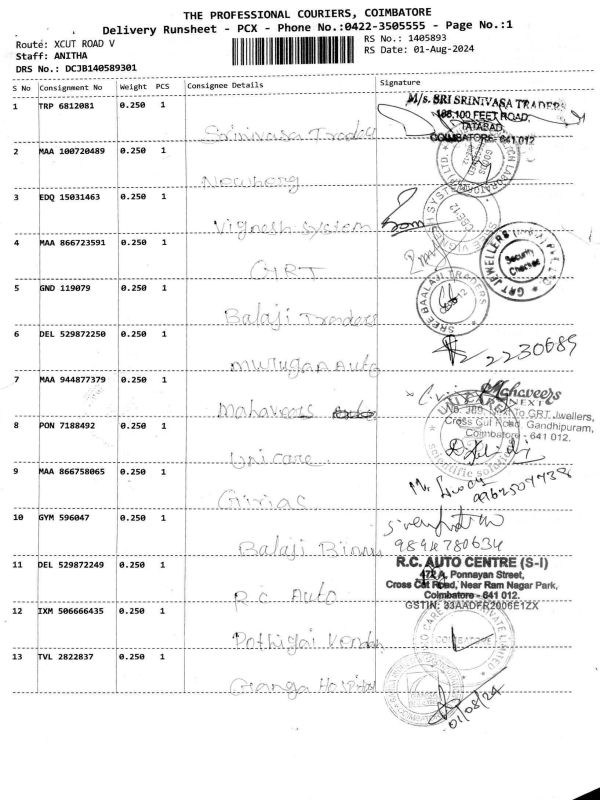 THE PROFESSIONAL COURIERS, COIMBATORE
Delivery Runsheet - PCX - Phone No.:0422-3505555 - Page No.:1
Route: XCUT ROAD V
RS No.: 1405893
Staff: ANITHA
RS Date: 01-Aug-2024
DRS No.: DCJB140589301
S No Consignment No Weight PCS Consignee Details Signature
1 TRP 6812081 0.250 1
Srinivasa Traders
M/s. SRI SRINIVASA TRADERS
100 FEET ROAD,
TATABAD,
COIMBATORE- 641 012
2 MAA 100720489 0.250 1
Newberg
3 EDQ 15031463 0.250 1
Vignesh System
4 MAA 866723591 0.250 1
GRT
GRT JEWELLERS
Security
Checked
5 GND 119079 0.250 1
Balaji Traders
SREE BAALAJI TRADERS
6 DEL 529872250 0.250 1
Murugan Auto
2230689
7 MAA 944877379 0.250 1
Mahaveers
Mahaveers
NEXT
To GRT Jwellers,
Cross Cut Road, Gandhipuram,
Coimbatore - 641 012.
8 PON 7188492 0.250 1
Unicare
UNICARE
scientific solutions
9 MAA 866758065 0.250 1
Girias
Mr.
10 GYM 596047 0.250 1
Balaji
11 DEL 529872249 0.250 1
R.C. Auto
R.C. AUTO CENTRE (S-I)
Ponnayan Street,
Cross Cut Road, Near Ram Nagar Park,
Coimbatore - 641 012.
GSTIN: 33AADFR2006E1ZX
12 IXM 506666435 0.250 1
Pothigai
COIMBATORE
13 TVL 2822837 0.250 1
Ganga Hospital
01/08/24